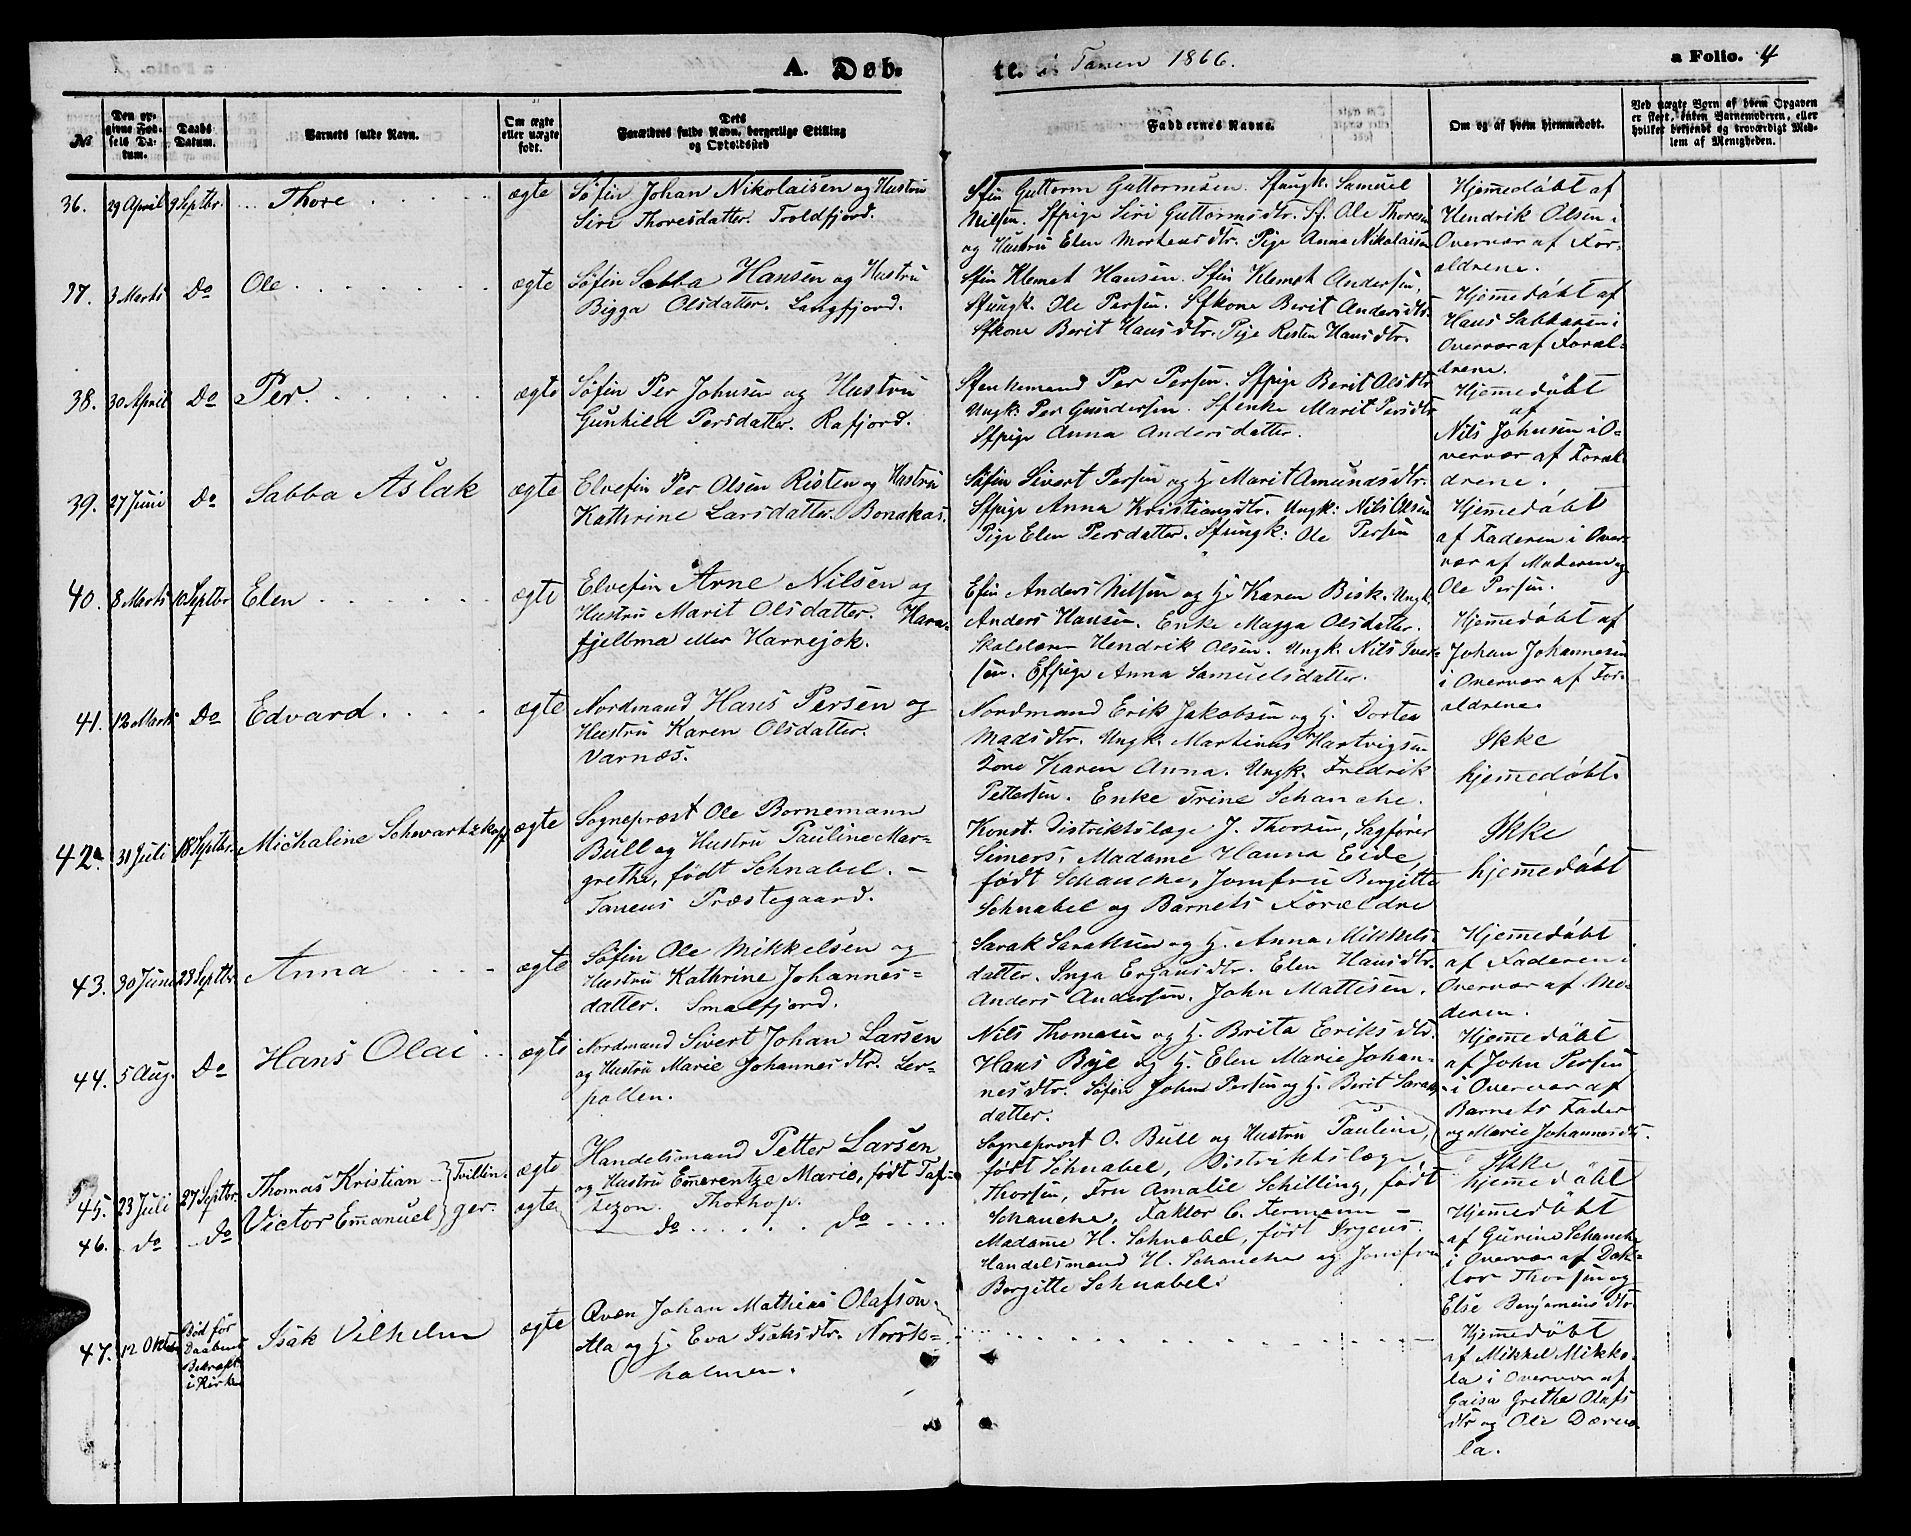 A. Døb.
te. i Tanen 1866.
a Folio. 4
№
Den op-
givne Fød-
sels Da-
tum.
Daabs
Datum.
Barnets fulde Navn.
Om ægte
eller uægte
født.
Dets
Forældres fulde Navn, borgerlige Stilling
og Opholdssted
Faddernes Navne.
Om og af hvem hjemmedøbt.
Ved uægte Børn af hvem Opgaven
er skeet, enten Barnemoderen, eller
hvilket bekjendt og troværdigt Med-
lem af Menigheden.
36. 29 April 9 Septbr. Thore ægte
Søfin Johan Nikolaisen og Hustru
Siri Thoresdatter. Troldfjord.
Sfin Guttorm Guttormsen. Sfungk. Samuel
Nilsen. Sfpige Siri Guttormsdtr. Sf. Ole Thoresen
og Hustru Elen Mortensdtr. Pige Anna Nikolaisen
Hjemmedøbt af
Hendrik Olsen i
Overvær af For-
ældrene.
37. 3 Marts Do Ole ægte
Søfin Sabba Hansen og Hustru
Bigga Olsdatter. Langfjord.
Sfin Klemet Hansen. Sfin Klemet Andersen.
Sfungk. Ole Persen. Sfkone Berit Andersdtr.
Sfkone Berit Hansdtr. Pige Resten Hansdtr.
Hjemmedøbt af
Hans Sabbasen i
Overvær af Foræl-
drene.
38. 30 April Do Per. ægte
Søfin Per Johnsen og Hustru
Gunhild Persdatter. Rafjord.
Sfenkemand Per Persen. Sfpige Berit Olsdtr
Ungk: Per Gundersen. Sfenke Marit Persdtr
Sfpige Anna Andersdatter.
Hjemmedøbt
af
Nils Johnsen i O-
vervær af Foræl-
drene.
39. 27 Juni Do Sabba Aslak ægte
Elvefin Per Olsen Risten og Hustru
Kathrine Larsdatter. Bonakas.
Søfin Sivert Persen og H. Marit Amundsdtr.
Sfpige Anna Kristiansdtr. Ungk: Nils Olsen
Pige Elen Persdatter. Sfungk: Ole Persen
Hjemmedøbt
af Faderen i Over-
vær af Moderen og
Ole Persen.
40. 8 Marts 10 Septbr Elen ægte
Elvefin Arne Nilsen og
Hustru Marit Olsdatter. Hara-
fjellma eller Harrejok.
Efin Anders Nilsen og H. Karen Bisk. Ungk.
Anders Hansen. Enke Magga Olsdatter.
Skolelærer Hendrik Olsen. Ungk: Nils Iver-
sen. Efpige Anna Samuelsdatter.
Hjemmedøbt af
Johan Johannesen
i Overvær af For-
ældrene
41. 12 Marts Do Edvard. ægte
Nordmand Hans Persen og
Hustru Karen Olsdatter.
Varnæs.
Nordmand Erik Jakobsen og H. Dortea
Madsdtr. Ungk. Martinus Hartvigsen
Kone Karen Anna. Ungk. Fredrik
Pettersen. Enke Trine Schanche.
Ikke
hjemmedøbt.
42. 31 Juli 18 Septbr. Michaline Schwartzkopf ægte
Sognepræst Ole Bornemann
Bull og Hustru Pauline Mar-
grethe, født Schnabel. –
Tanens Præstegaard.
Konst. Distriktslæge J. Thorsen, Sagfører
Simers, Madame Hanna Eide,
født Schanche, Jomfru Bergitte
Schnabel og Barnets Forældre
Ikke
hjemmedøbt
43. 30 Juni 23 Septbr. Anna ægte
Søfin Ole Mikkelsen og
Hustru Kathrine Johannes-
datter. Smalfjord.
Sarak Saraksen og H. Anna Mikkels-
datter. Inga Erjansdtr. Elen Hansdtr.
Anders Andersen. John Mattisen.
Hjemmedøbt
af Faderen i
Overvær af Mo-
deren.
44. 5 Aug. Do Hans Olai ægte
Nordmand Sivert Johan Larsen
og Hustru Marie Johannesdtr. Ler-
pollen.
Nils Thomasen og H. Brita Eriksdtr.
Hans Bye og H. Elen Marie Johan-
nesdtr. Søfin John Persen og H. Berit Saras-
datter.
Hjemmedøbt
af John Persen
i Overvær af
Barnets Fader
og Marie Johannesdtr.
45. 23 Juli 27 Septbr. Thomas Kristian Tvillin- ægte
46. do Do Victor Emanuel ger. ægte
Handelsmand Petter Larsen
og Hustru Emerentze Marie, født Taf-
tezon. Thorhop.
do do
Sogneprost O. Bull og Hustru Pauline,
født Schnabel, Distriktslæge
Thorsen, Fru Amalie Schilling, født
Schanche, Faktor C. Fermann –
Madame H. Schnabel, født Irgens
Handelsmand H. Schanche og Jomfru
Bergitte Schnabel.
Ikke
hjemmedøbt
Hjemmedøbt
af Gurine Schanche
i Overvær af Dok-
tor Thorsen og
Else Benjaminsdtr
47. 12 Oktbr Død før
Daabens
Bekræft.
i Kirke
Isak Vilhelm ægte
Qvæn Johan Mathias Olafson
Ala og H. Eva Isaksdtr. Norsk-
holmen.
Hjemmedøbt
af Mikkel Mikko-
la i Overvær af
Gaisa Grethe Olafs
dtr og Ole Dærvo-
la.